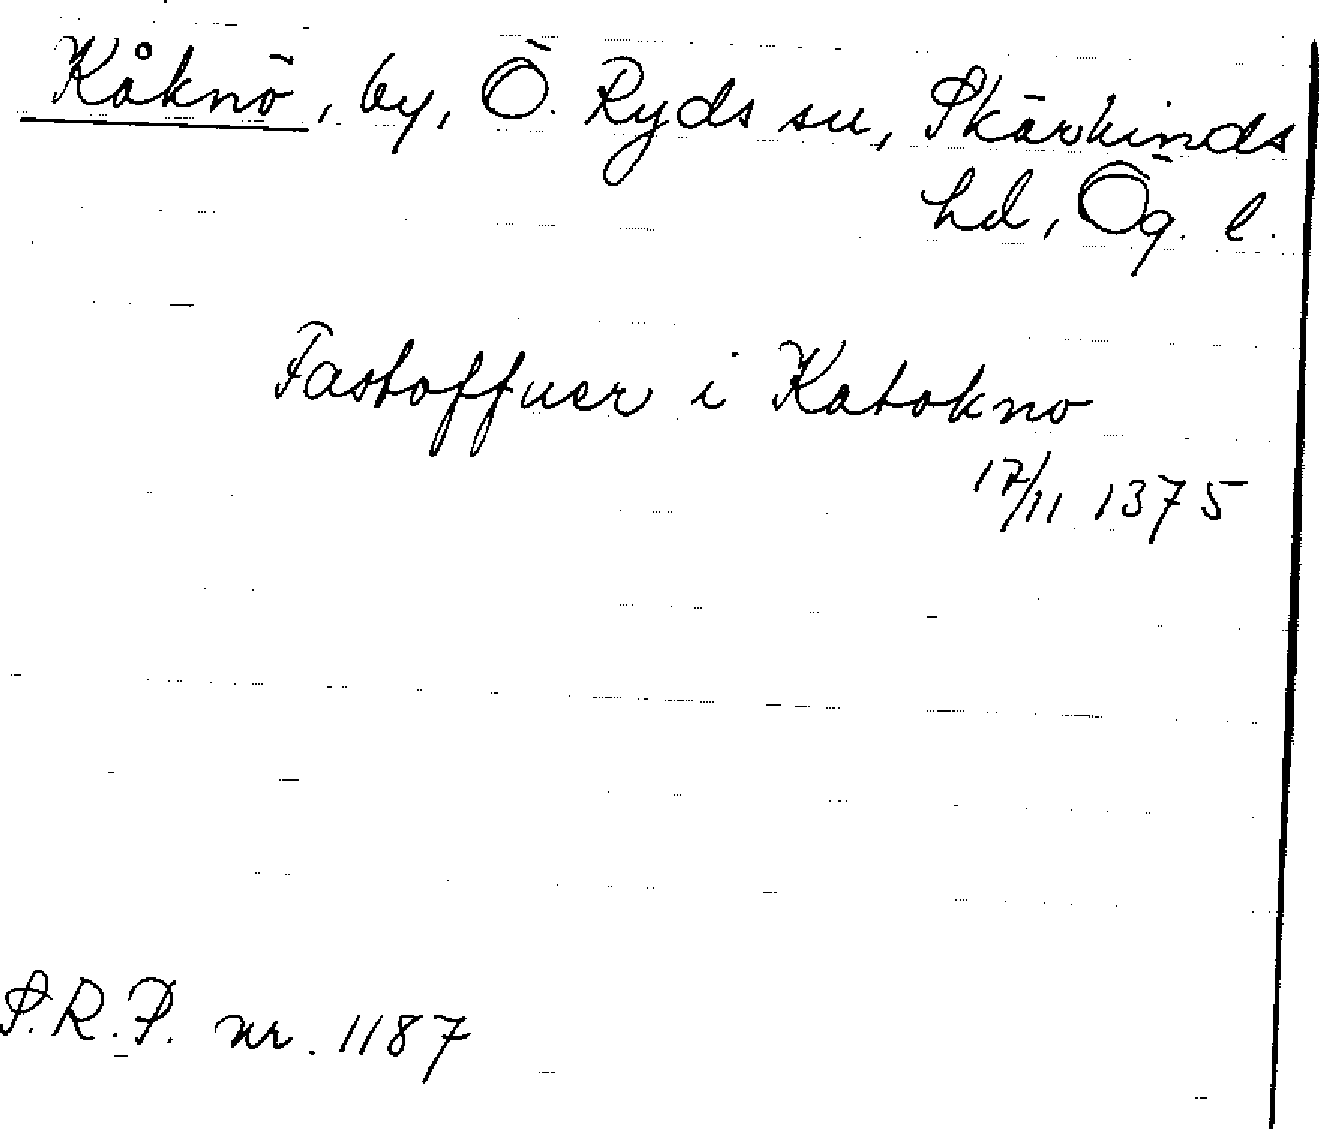 Kåknö, by, Ö. Ryds sn, Skärkinds
hd, Ög. l.
Fastoffuer i Katokno
17/11 1375
S.R.P. nr. 1187